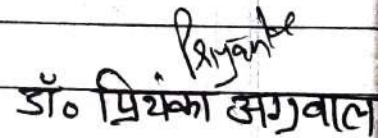 Priyanka
डॉ० प्रियंका अग्रवाल